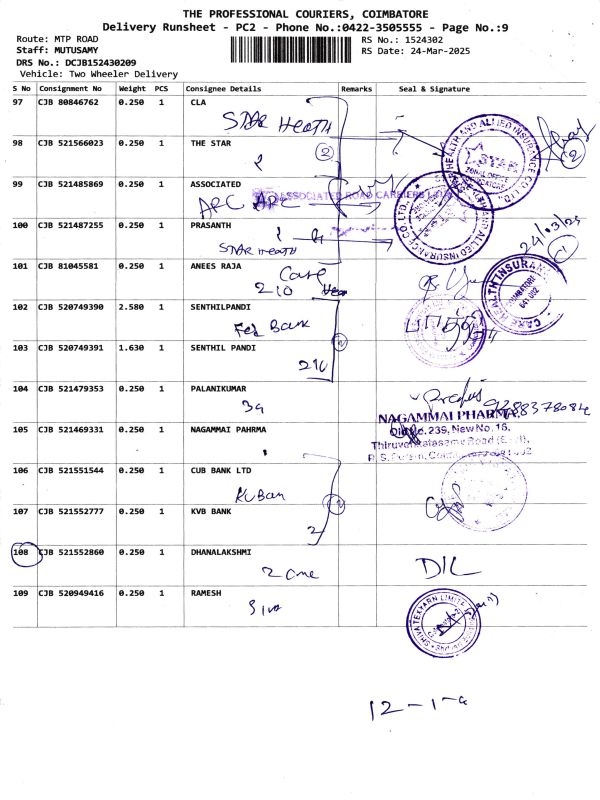 THE PROFESSIONAL COURIERS, COIMBATORE
Delivery Runsheet - PC2 - Phone No.:0422-3505555 - Page No.:9
Route: MTP ROAD
RS No.: 1524302
Staff: MUTUSAMY
RS Date: 24-Mar-2025
DRS No.: DCJB152430209
Vehicle: Two Wheeler Delivery
S No Consignment No Weight PCS Consignee Details Remarks Seal & Signature
97 CJB 80846762 0.250 1 CLA
STAR Heath
98 CJB 521566023 0.250 1 THE STAR
2
99 CJB 521485869 0.250 1 ASSOCIATED
ASSOCIATED ROAD CARRIERS
ARC ARC
100 CJB 521487255 0.250 1 PRASANTH
STAR Heath
24/03/25
101 CJB 81045581 0.250 1 ANEES RAJA
Care
210
102 CJB 520749390 2.580 1 SENTHILPANDI
Fed Bank
103 CJB 520749391 1.630 1 SENTHIL PANDI
210
104 CJB 521479353 0.250 1 PALANIKUMAR
NAGAMMAI PHARMA
105 CJB 521469331 0.250 1 NAGAMMAI PAHRMA
Old No. 239, New No. 16,
106 CJB 521551544 0.250 1 CUB BANK LTD
KVBan
107 CJB 521552777 0.250 1 KVB BANK
2
108 CJB 521552860 0.250 1 DHANALAKSHMI
109 CJB 520949416 0.250 1 RAMESH